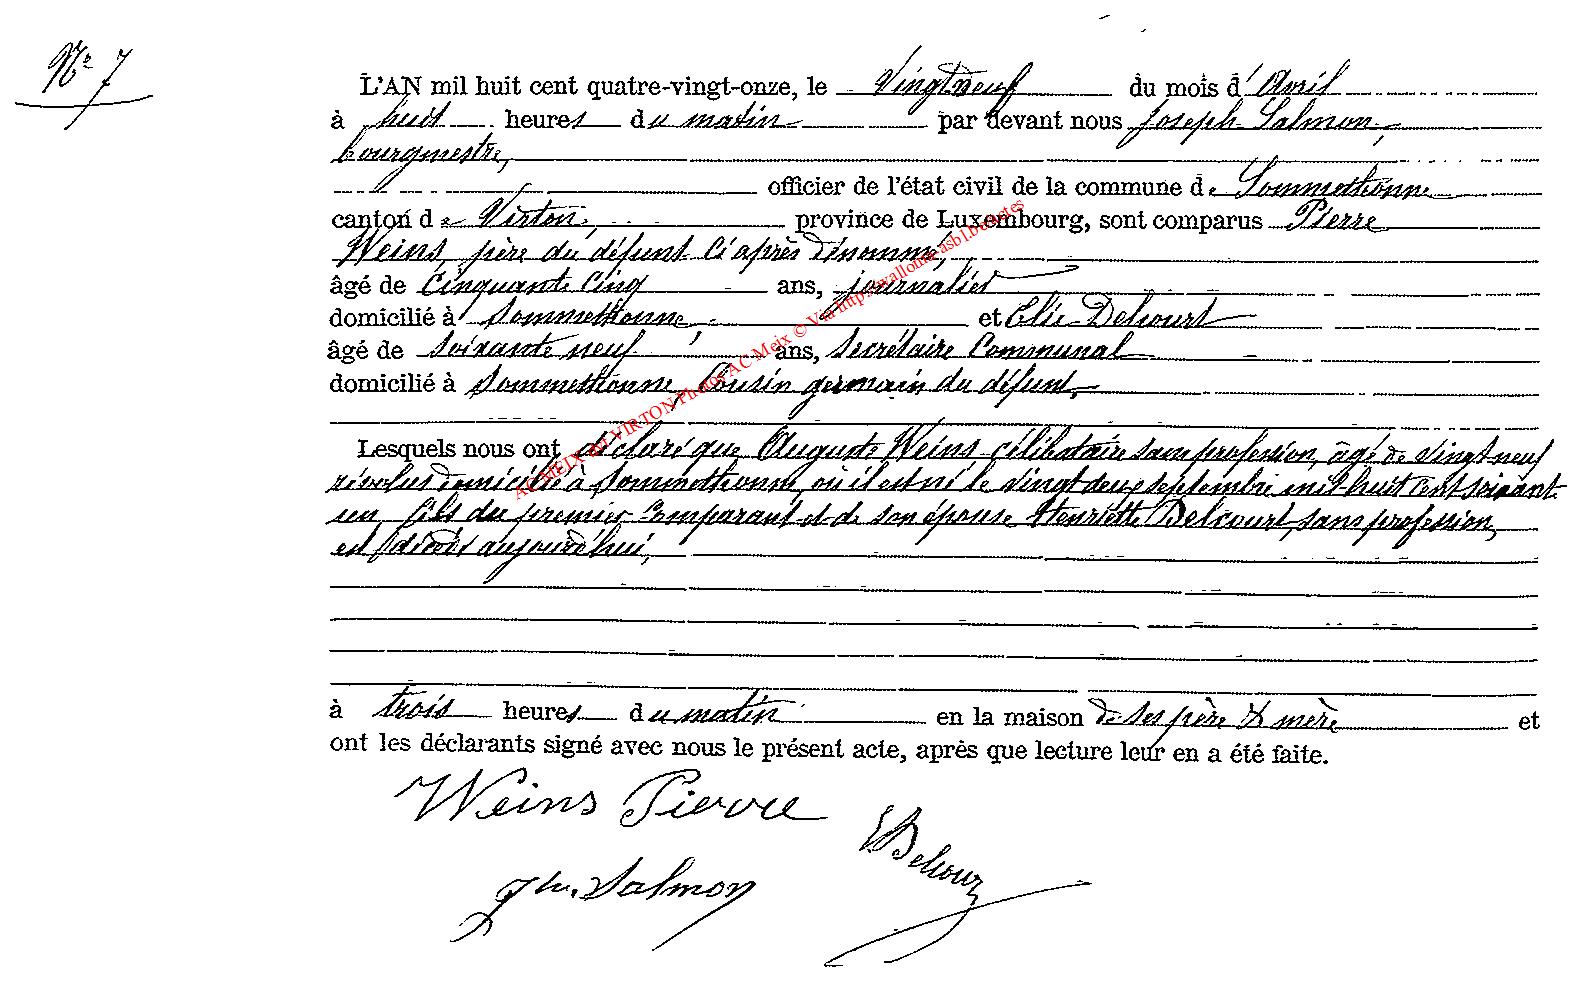 N° 7
L'AN mil huit cent quatre-vingt-onze, le Vingt neuf du mois d'Avril
à huit heures du matin par devant nous Joseph Salmon,
bourgmestre,
officier de l'état civil de la commune de Sommethonne
canton de Virton, province de Luxembourg, sont comparus Pierre
Weins, père du défunt ci après dénommé,
âgé de Cinquante cinq ans, journalier
domicilié à Sommethonne, et Elie Delcourt
âgé de soixante neuf ans, secrétaire Communal
domicilié à Sommethonne, Cousin germain du défunt,
Lesquels nous ont déclaré que Auguste Weins célibataire sans profession, âgé de vingt neuf
révolus domicilié à Sommethonne, où il est né le vingt deux septembre mil-huit Cent soixant
un, fils du premier Comparant et de son épouse Henriette Delcourt, sans profession,
est décédé aujourd'hui,
à trois heures du matin en la maison de ses père & mère et
ont les déclarants signé avec nous le présent acte, après que lecture leur en a été faite.
Weins Pierre
E Delcourt
Jh. Salmon
AC Meix © Via http://wallonia-asbl.be/actes